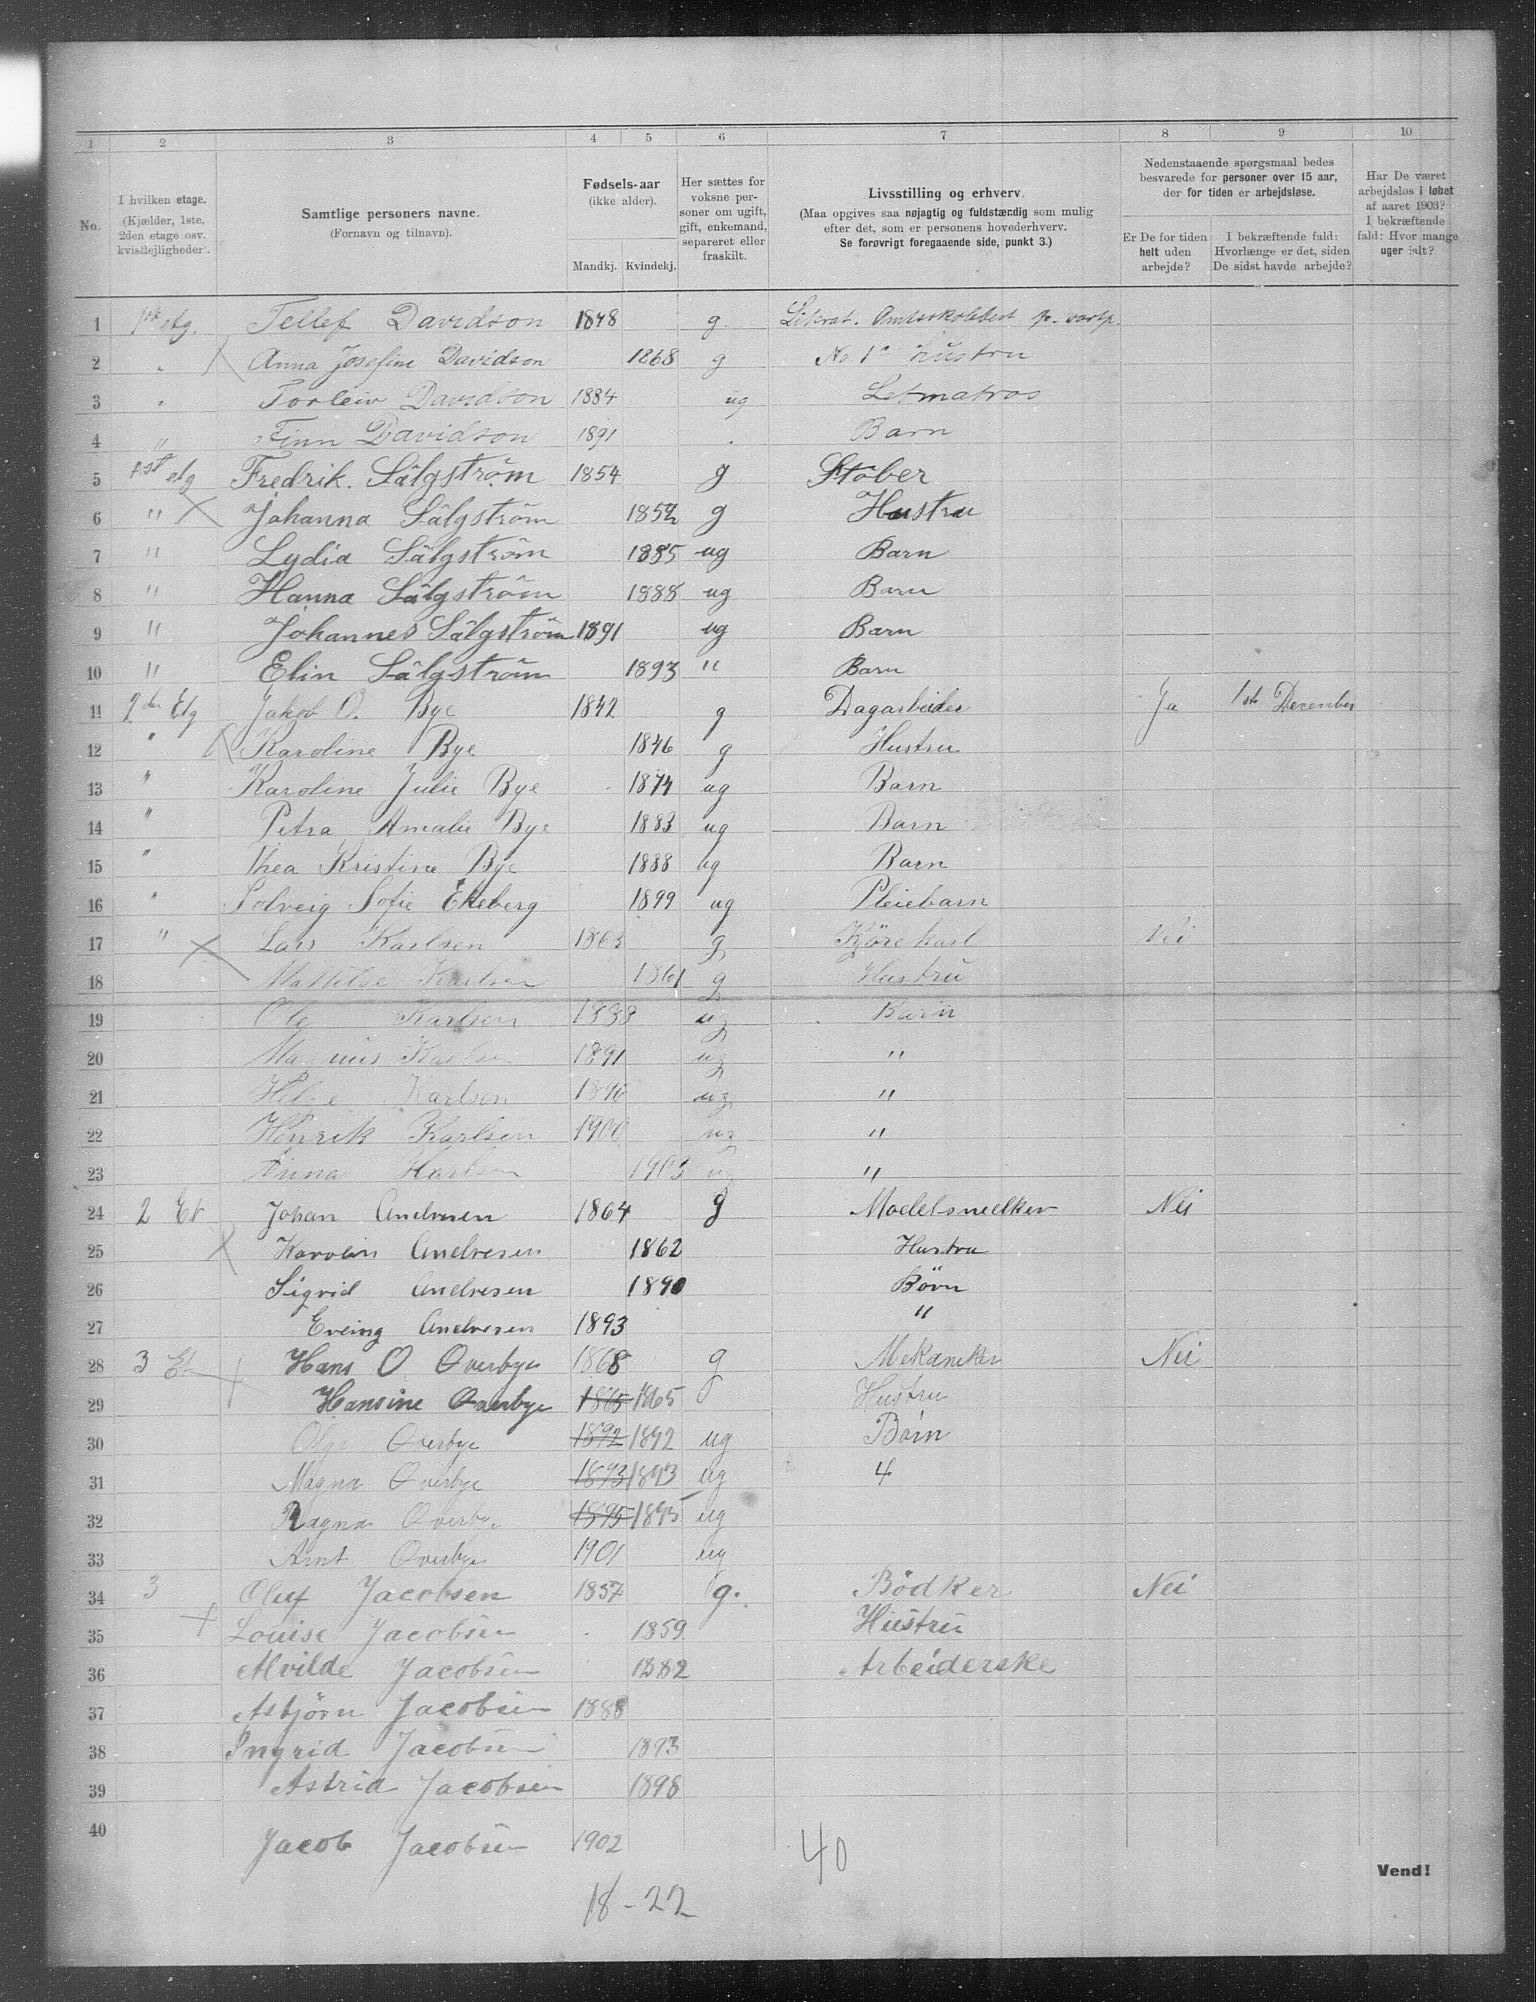 1 2 3 4 5 6 7 8 9 10
No.
I hvilken etage.
(Kjælder, 1ste,
2den etage osv.
kvistlejligheder).
Samtlige personers navne.
(Fornavn og tilnavn).
Fødsels-aar
(ikke alder).
Mandkj. Kvindekj.
Her sættes for
voksne per-
soner om ugift,
gift, enkemand,
separeret eller
fraskilt.
Livsstilling og erhverv.
(Maa opgives saa nøjagtig og fuldstændig som mulig
efter det, som er personens hovederhverv.
Se forøvrigt foregaaende side, punkt 3.)
Nedenstaaende spørgsmaal bedes
besvarede for personer over 15 aar,
der for tiden er arbejdsløse.
Er De for tiden
helt uden
arbejde?
I bekræftende fald:
Hvorlænge er det, siden
De sidst havde arbejde?
Har De været
arbejdsløs i løbet
af aaret 1903?
I bekræftende
fald: Hvor mange
uger ialt?
1 1ste etg. Tellef Davidson 1848 g.
2 " Anna Josefine Davidson 1868 g No. 1s hustru
3 " Torleiv Davidson 1884 ug Letmatros
4 " Finn Davidson 1891 . Barn
5 1st etg Fredrik. Sälgström 1854 g Støber
6 " Johanna Sälgström 1852 g Hustru
7 " Lydia Sälgström 1885 ug Barn
8 " Hanna Sälgström 1888 ug Barn
9 " Johannes Sälgström 1891 ug Barn
10 " Elin Sälgström 1893 " Barn
11 2den Etg Jakob O. Bye 1842 g Dagarbeider Ja 1ste December
12 " Karoline Bye 1846 g Hustru
13 " Karoline Julie Bye 1874 ug Barn
14 " Petra Amalie Bye 1883 ug Barn
15 " Thea Kristine Bye 1888 ug Barn
16 " Solveig Sofie Ekeberg 1899 ug Pleiebarn
17 " Lars Karlsen 1863 g Kjörekarl Nei
18 Mathilde Karlsen 1861 g Hustru
19 Ole Karlsen 1888 ug Barn
20 Magnus Karlsen 1891 ug "
21 Karlsen ug "
22 Henrik Karlsen 1900 ug "
23 Anna Karlsen 1903 ug "
24 2 Et Johan Andresen 1864 g Modelsnedker Nei
25 Karolin Andresen 1862 Hustru
26 Sigrid Andresen 1890 Börn
27 Eveing Andresen 1893 "
28 3 Et Hans O Overbye 1868 g Mekaniker Nei
29 Hansine Overbye 1865 1865 Hustru
30 Olga Overbye 1892 1892 ug Börn
31 Magna Overbye 1893 1893 ug 4
32 Ragna Overbye 1895 1895 ug
33 Arnt Overbye 1901 ug
34 3 Oluf Jacobsen 1857 g. Bödker Nei
35 Louise Jacobsen 1859 Hustru
36 Alvilde Jacobsen 1882 Arbeiderske
37 Asbjörn Jacobsen 1888
38 Ingrid Jacobsen 1893
39 Astrid Jacobsen 1898
40 Jacob Jacobsen 1902
40
Vend!
18-22